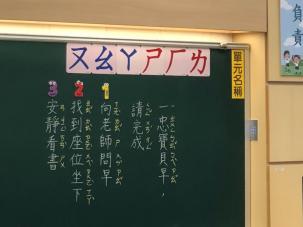 ㄡㄠㄚㄕㄏㄌ
單元名稱
負責
一忠寶貝早，
請完成
1 向老師問早
2 找到座位坐下
3 安靜看書